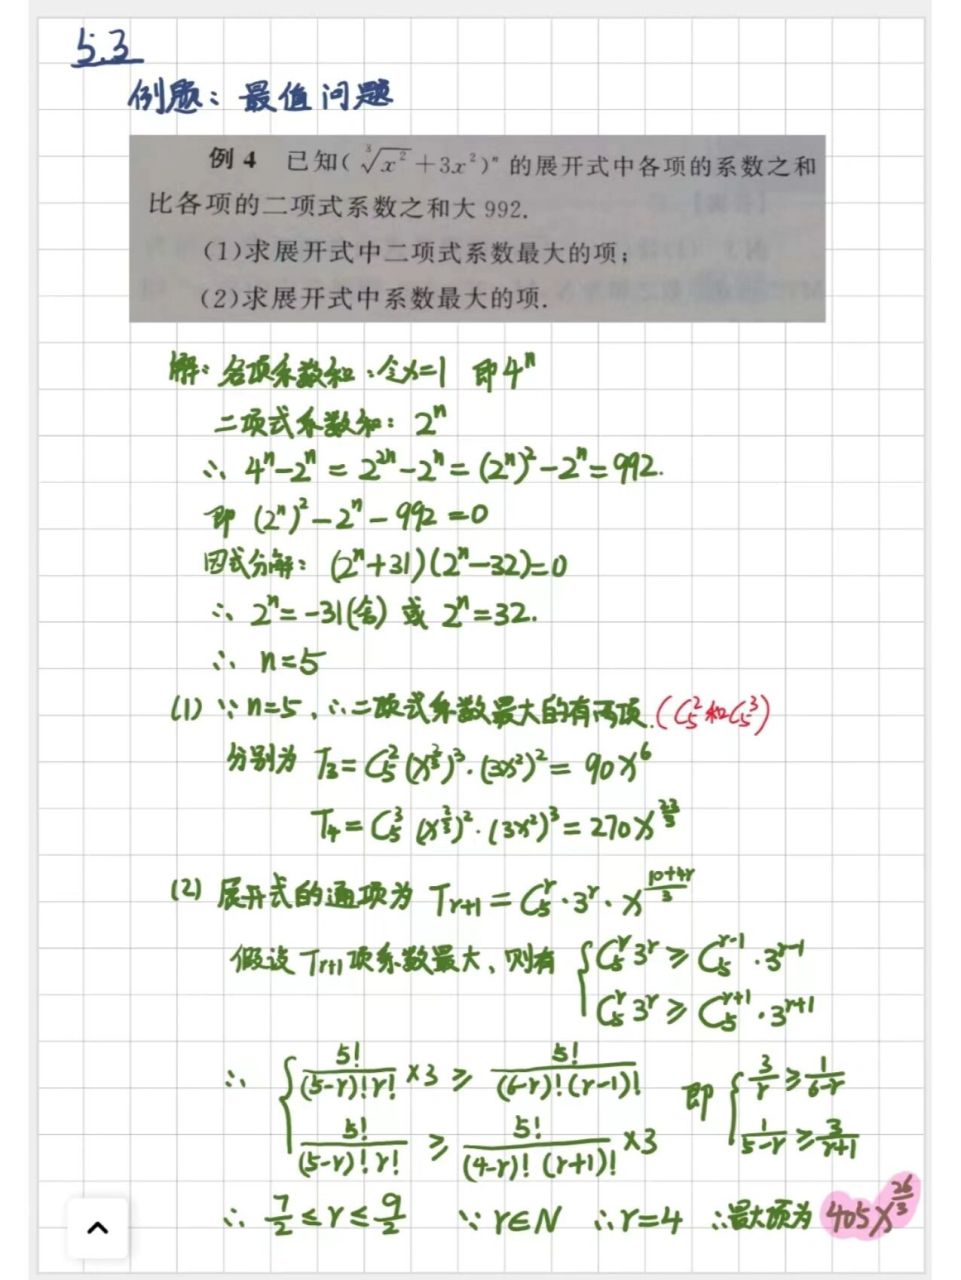 5.3
例题：最值问题
例4 已知(∛x² + 3x²)ⁿ 的展开式中各项的系数之和
比各项的二项式系数之和大 992.
(1)求展开式中二项式系数最大的项;
(2)求展开式中系数最大的项.
解：各项系数和：令x=1 即4ⁿ
二项式系数和：2ⁿ
∴ 4ⁿ-2ⁿ = 2²ⁿ-2ⁿ = (2ⁿ)²-2ⁿ = 992.
即 (2ⁿ)²-2ⁿ-992=0
因式分解：(2ⁿ+31)(2ⁿ-32)=0
∴ 2ⁿ=-31(舍) 或 2ⁿ=32.
∴ n=5
(1) ∵n=5，∴二项式系数最大的有两项.(C₅²和C₅³)
分别为 T₃=C₅²(x^(2/3))³·(3x²)²=90x⁶
T₄=C₅³(x^(2/3))²·(3x²)³=270x^(22/3)
(2) 展开式的通项为 T_(r+1)=C₅^r·3^r·x^((10+4r)/3)
假设T_(r+1)项系数最大、则有 { C₅^r 3^r ≥ C₅^(r-1)·3^(r-1)
C₅^r 3^r ≥ C₅^(r+1)·3^(r+1)
∴ { 5!/((5-r)!r!) ×3 ≥ 5!/((6-r)!(r-1)!) 即 { 3/r ≥ 1/(6-r)
5!/((5-r)!r!) ≥ 5!/((4-r)!(r+1)!) ×3 1/(5-r) ≥ 3/(r+1)
∴ 7/2 ≤ r ≤ 9/2 ∵ r∈N ∴r=4 ∴最大项为 405x^(26/3)